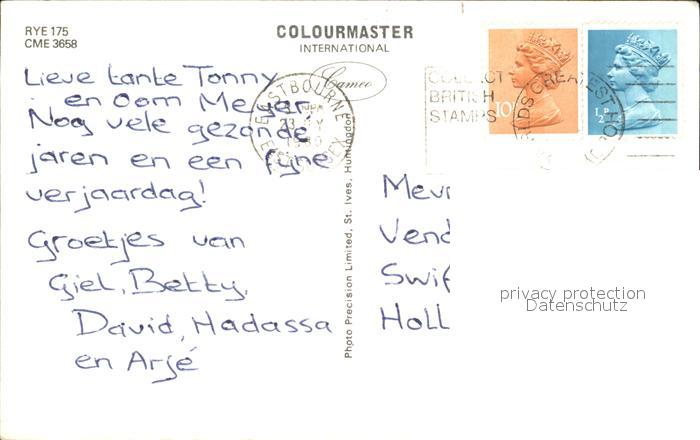 RYE 175
CME 3658
COLOURMASTER
INTERNATIONAL
Cameo
Lieve tante Tonny
en Oom Meyer,
Nog vele gezonde
jaren en een fijne
verjaardag!
Groetjes van
Giel, Betty,
David, Hadassa
en Arjé
Photo Precision Limited, St. Ives, Huntingdon
EASTBOURNE
COLLECT
BRITISH
STAMPS
10
½P
Mevr
Vend
Swif
Holl
privacy protection
Datenschutz